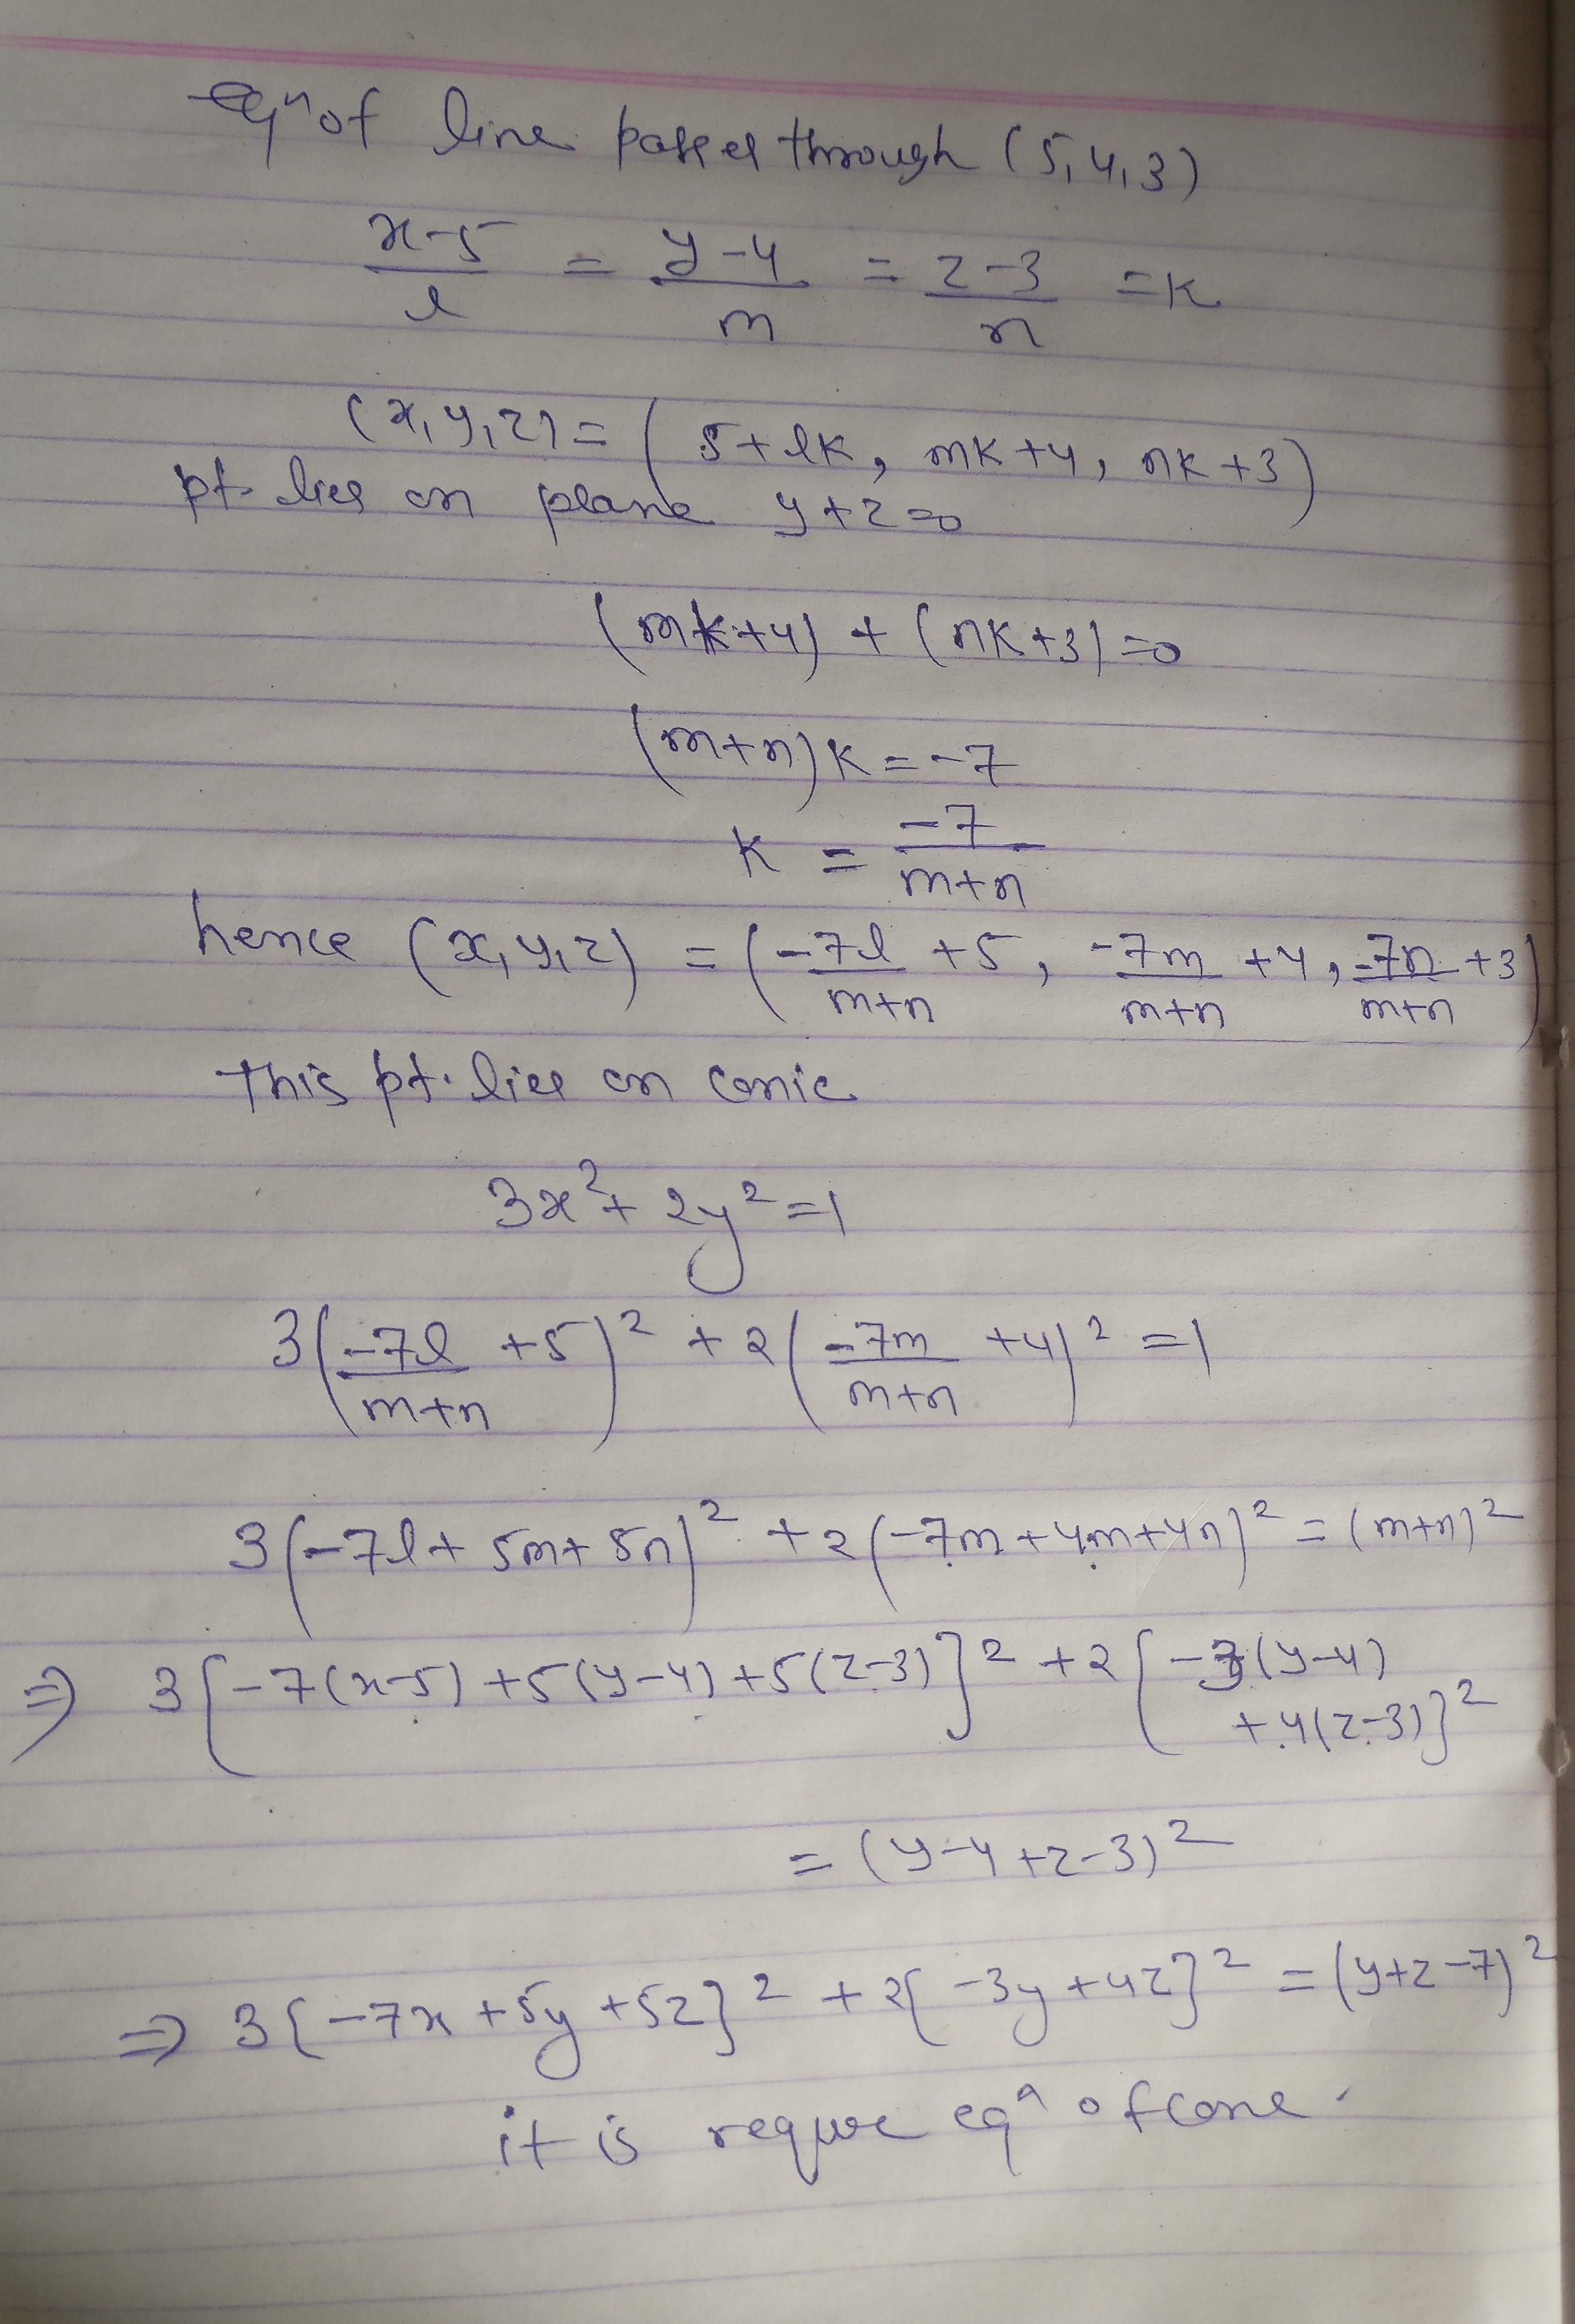 Eqⁿ of line passes through (5,4,3)
(x-5)/l = (y-4)/m = (z-3)/n = k
(x,y,z) = (5+lk, mk+4, nk+3)
pt. lies on plane y+z=0
(mk+4) + (nk+3) = 0
(m+n)k = -7
k = -7/(m+n)
hence (x,y,z) = (-7l/(m+n) +5, -7m/(m+n) +4, -7n/(m+n) +3)
This pt. lies on conic
3x²+ 2y²=1
3(-7l/(m+n) +5)² + 2(-7m/(m+n) +4)² = 1
3(-7l+ 5m+ 5n)² +2(-7m+4m+4n)² = (m+n)²
⇒ 3[-7(x-5)+5(y-4)+5(z-3)]² +2[-3(y-4)
+4(z-3)]²
= (y-4+z-3)²
⇒ 3{-7x+5y+5z}² + 2{-3y+4z}² = (y+z-7)²
it is require eqⁿ of cone.